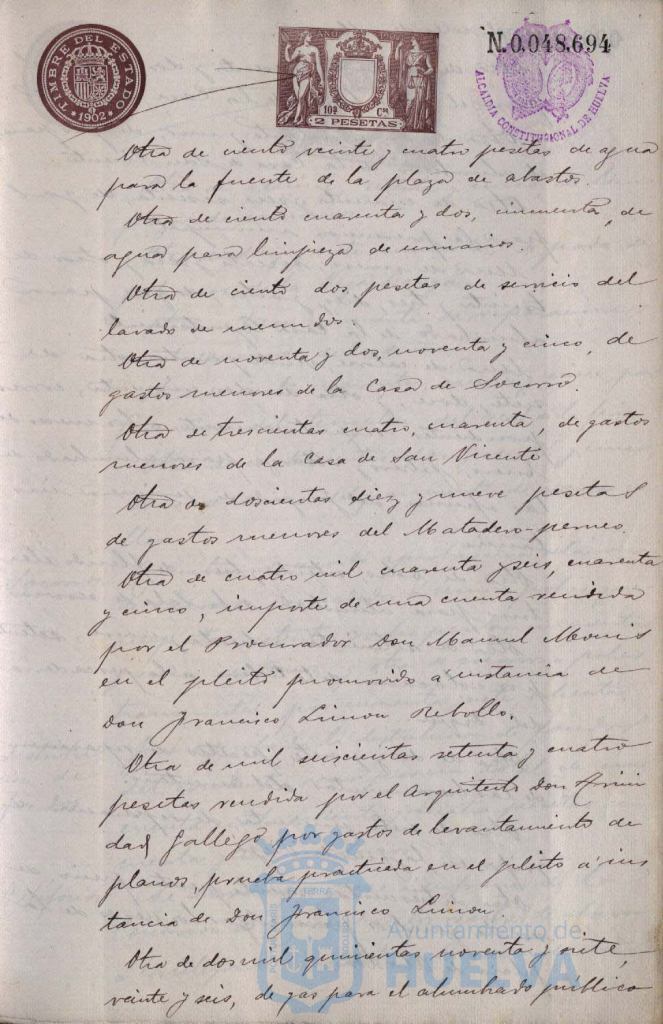 TIMBRE DEL ESTADO
* 1902 *
AÑO 19
10ª Cª
2 PESETAS
N.0.048.694
ALCALDIA CONSTITUCIONAL DE HUELVA
Otra de ciento veinte y cuatro pesetas de agua
para la fuente de la plaza de abastos.
Otra de ciento cuarenta y dos, cincuenta, de
agua para limpieza de urinarios.
Otra de ciento dos pesetas de servicio del
lavado de menudos.
Otra de noventa y dos, noventa y cinco, de
gastos menores de la Casa de Socorro.
Otra de trescientas cuatro, cuarenta, de gastos
menores de la Casa de San Vicente
Otra de doscientas diez y nueve pesetas
de gastos menores del Matadero-perneo.
Otra de cuatro mil cuarenta y seis, cuarenta
y cinco, importe de una cuenta rendida
por el Procurador Don Manuel Monis
en el pleito promovido á instancia de
Don Francisco Limon Rebollo.
Otra de mil seiscientas setenta y cuatro
pesetas rendida por el Arquitecto Don Trini
dad Gallego por gastos de levantamiento de
planos, prueba practicada en el pleito á ins
tancia de Don Francisco Limon.
Otra de dos mil quinientas noventa y siete,
veinte y seis, de gas para el alumbrado público
Ayuntamiento de
HUELVA